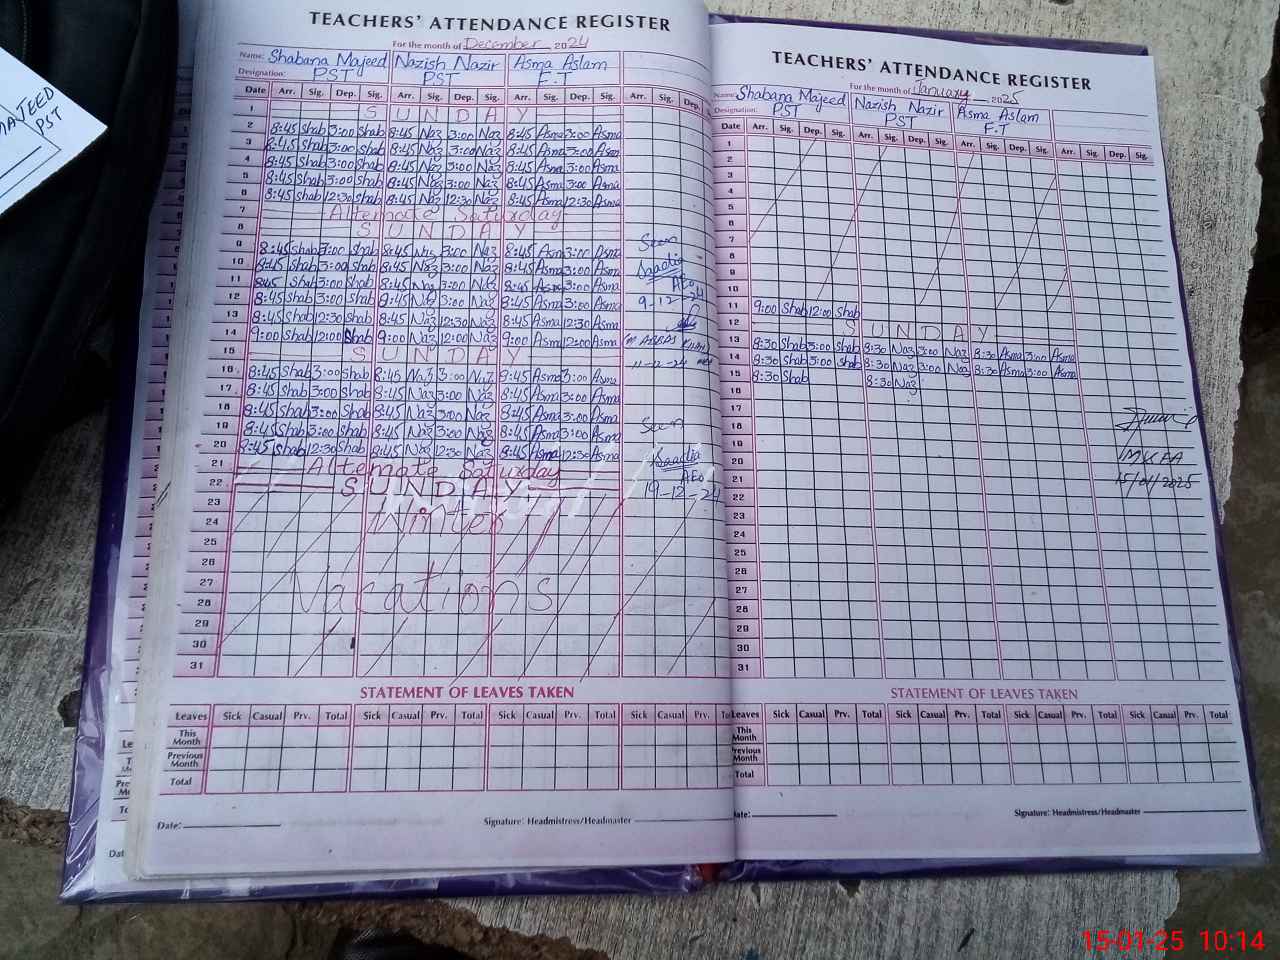 MAJEED
PST
TEACHERS' ATTENDANCE REGISTER
For the month of December 2024
Name: Shabana Majeed Nazish Nazir Asma Aslam
Designation: PST PST F.T
Date Arr. Sig. Dep. Sig. Arr. Sig. Dep. Sig. Arr. Sig. Dep. Sig. Arr. Sig. Dep.
1 SUNDAY
2 8:45 Shab 3:00 Shab 8:45 Naz 3:00 Naz 8:45 Asma 3:00 Asma
3 8:45 Shab 3:00 Shab 8:45 Naz 3:00 Naz 8:45 Asma 3:00 Asm
4 8:45 Shab 3:00 Shab 8:45 Naz 3:00 Naz 8:45 Asma 3:00 Asma
5 8:45 Shab 3:00 Shab 8:45 Naz 3:00 Naz 8:45 Asma 3:00 Asma
6 8:45 Shab 12:30 Shab 8:45 Naz 12:30 Naz 8:45 Asma 12:30 Asma
7 Alternate Saturday
8 SUNDAY
9 8:45 Shab 3:00 Shab 8:45 Naz 3:00 Naz 8:45 Asm 3:00 Asma Seen
10 8:45 Shab 3:00 Shab 8:45 Naz 3:00 Naz 8:45 Asma 3:00 Asma Saadia
11 8:45 Shab 3:00 Shab 8:45 Naz 3:00 Naz 8:45 Asma 3:00 Asma AEO
12 8:45 Shab 3:00 Shab 8:45 Naz 3:00 Naz 8:45 Asma 3:00 Asma 9-12-24
13 8:45 Shab 12:30 Shab 8:45 Naz 12:30 Naz 8:45 Asma 12:30 Asma
14 9:00 Shab 12:00 Shab 9:00 Naz 12:00 Naz 9:00 Asma 12:00 Asma
15 SUNDAY 11-12-24
16 8:45 Shab 3:00 Shab 8:45 Naz 3:00 Naz 8:45 Asma 3:00 Asma
17 8:45 Shab 3:00 Shab 8:45 Naz 3:00 Naz 8:45 Asma 3:00 Asma
18 8:45 Shab 3:00 Shab 8:45 Naz 3:00 Naz 8:45 Asma 3:00 Asma
19 8:45 Shab 3:00 Shab 8:45 Naz 3:00 Naz 8:45 Asma 3:00 Asma Seen
20 8:45 Shab 12:30 Shab 8:45 Naz 12:30 Naz 8:45 Asma 12:30 Asma
21 Alternate Saturday Saadia AEO
22 SUNDAY 19-12-24
23
24 Winter
25
26
27 Vacations
28
29
30
31
STATEMENT OF LEAVES TAKEN
Leaves Sick Casual Prv. Total Sick Casual Prv. Total Sick Casual Prv. Total Sick Casual Prv.
This Month
Previous Month
Total
Date: Signature: Headmistress/Headmaster
TEACHERS' ATTENDANCE REGISTER
For the month of January 2025
Name: Shabana Majeed Nazish Nazir Asma Aslam
Designation: PST PST F.T
Date Arr. Sig. Dep. Sig. Arr. Sig. Dep. Sig. Arr. Sig. Dep. Sig. Arr. Sig. Dep. Sig.
1
2
3
4
5
6
7
8
9
10
11 9:00 Shab 12:00 Shab
12 SUNDAY
13 8:30 Shab 3:00 Shab 8:30 Naz 3:00 Naz 8:30 Asma 3:00 Asma
14 8:30 Shab 3:00 Shab 8:30 Naz 3:00 Naz 8:30 Asma 3:00 Asma
15 8:30 Shab 8:30 Naz
16
17
18
19
20 MKFA
21 15/01/2025
22
23
24
25
26
27
28
29
30
31
STATEMENT OF LEAVES TAKEN
Leaves Sick Casual Prv. Total Sick Casual Prv. Total Sick Casual Prv. Total Sick Casual Prv. Total
This Month
Previous Month
Total
Date: Signature: Headmistress/Headmaster
15-01-25 10:14